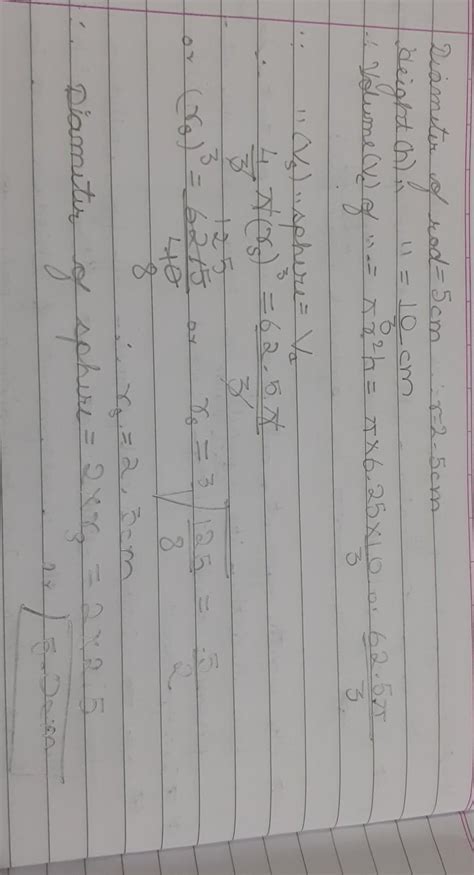 Diameter of rod = 5cm ∴ r=2.5cm
Height (h) " " = 10/3 cm
∴ Volume (V₁) of " = πr²h = π×6.25×10/3 or 62.5π/3
∵ " (Vₛ) " sphere = V₁
∴ 4/3 π(rₛ)³ = 62.5π/3
or (rₛ)³ = 625/40 125/8 or rₛ = ³√125/8 = 5/2
∴ rₛ = 2.5cm
∴ Diameter of sphere = 2×rₛ = 2×2.5